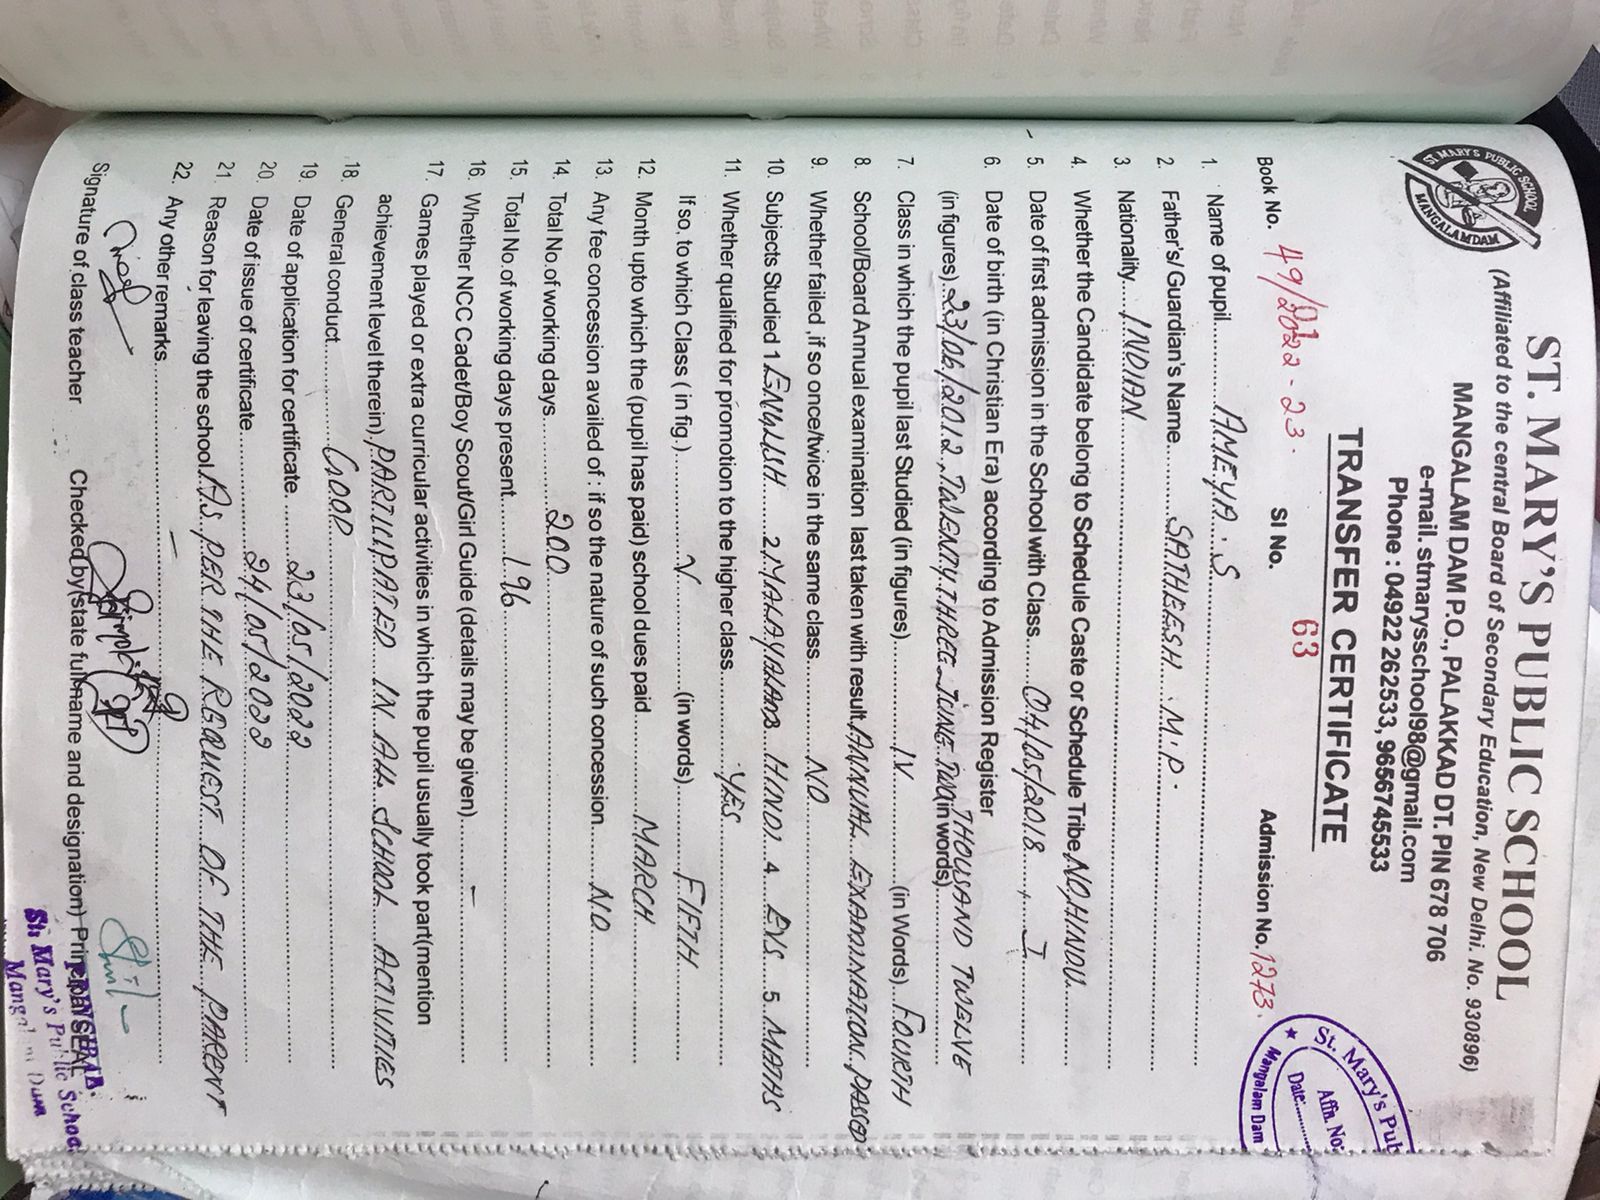 ST. MARY'S PUBLIC SCHOOL
(Affiliated to the central Board of Secondary Education, New Delhi. No. 930896)
MANGALAM DAM P.O., PALAKKAD DT. PIN 678 706
e-mail. stmarysschool98@gmail.com
Phone : 04922 262533, 9656745533
ST MARY'S PUBLIC SCHOOL
MANGALAMDAM
TRANSFER CERTIFICATE
Book No. 49/2022-23. Sl No. 63 Admission No. 1273.
St. Mary's Pub
Affn. No:
Date:
Mangalam Dam
1. Name of pupil AMEYA. S
2. Father's/ Guardian's Name SATHEESH. M.P.
3. Nationality INDIAN
4. Whether the Candidate belong to Schedule Caste or Schedule Tribe NO, HINDU
5. Date of first admission in the School with Class 04/05/2018, I
6. Date of birth (in Christian Era) according to Admission Register
(in figures) 23/06/2012, TWENTY THREE JUNE TWO (in words) THOUSAND TWELVE
7. Class in which the pupil last Studied (in figures) IV (in Words) FOURTH
8. School/Board Annual examination last taken with result ANNUAL EXAMINATION, PASSED
9. Whether failed ,if so once/twice in the same class NO
10. Subjects Studied 1 ENGLISH 2. MALAYALAM HINDI 4 EVS 5. MATHS
11. Whether qualified for promotion to the higher class YES
If so, to which Class ( in fig.) V (in words) FIFTH
12. Month upto which the (pupil has paid) school dues paid MARCH
13. Any fee concession availed of : if so the nature of such concession NO
14. Total No.of working days 200
15. Total No.of working days present 196
16. Whether NCC Cadet/Boy Scout/Girl Guide (details may be given) -
17. Games played or extra curricular activities in which the pupil usually took part(mention
achievement level therein) PARTICIPATED IN ALL SCHOOL ACTIVITIES
18. General conduct GOOD
19. Date of application for certificate. 23/05/2022
20. Date of issue of certificate 24/05/2022
21. Reason for leaving the school AS PER THE REQUEST OF THE PARENT
22. Any other remarks -
Signature of class teacher Checked by(state full name and designation) Principal SEAL
PRINCIPAL
St. Mary's Public School
Mangalam Dam